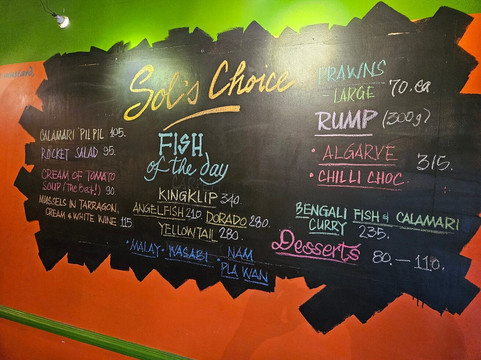 Sol's Choice
CALAMARI PIL PIL 105.
ROCKET SALAD 95.
CREAM OF TOMATO
SOUP (The Best!) 90
MUSSELS IN TARRAGON,
CREAM & WHITE WINE 115
FISH
of the day
KINGKLIP 340.
ANGELFISH 210 DORADO 280.
YELLOWTAIL 280.
• MALAY • WASABI • NAM
PLA WAN
PRAWNS
- LARGE 70.ea
RUMP (300g)
• ALGARVE
• CHILLI CHOC
315.
BENGALI FISH & CALAMARI
CURRY 235.
Desserts 80.— 110.